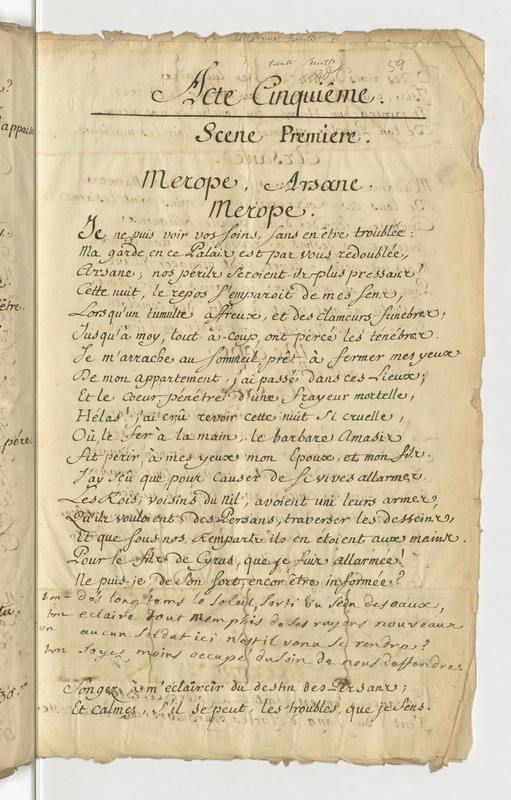 59
Acte Cinquiême.
Scene Premiere.
Merope, Arsane.
Merope.
Je ne puis voir vos soins, sans en être troublée:
Ma garde en ce Palais est par vous redoublée,
Arsane; nos périls seroient-ils plus pressans?
Cette nuit, le repos s'emparoit de mes sens,
Lorsqu'un tumulte affreux, et des clameurs funebres,
Jusqu'à moy, tout-à-coup, ont percé les ténébres.
Je m'arrache au sommeil, prêt à fermer mes yeux.
De mon appartement, j'ai passé dans ces Lieux;
Et le Coeur pénétré d'une frayeur mortelle,
Hélas! j'ai crû revoir cette nuit si cruelle,
Où, le fer à la main, le barbare Amasis
Fit périr à mes yeux mon Epoux, et mon fils.
J'ay sçû que, pour causer de si vives allarmes,
Les Rois, voisins du Nil, avoient uni leurs armes,
Qu'ils vouloient, des Persans, traverser les desseins,
Et que sous nos Remparts ils en étoient aux mains.
Pour le fils de Cyrus, que je suis allarmée!
Ne puis-je de son sort, encor être informée?
bon = des longtems le soleil, sorti du sein des eaux,
bon eclaire tout memphis de ses rayons nouveaux
on aucun soldat ici n'est il venu se rendre?
bon soyes moins occupé du soin de nous deffendre.
Songez à m'éclaircir du destin des Persans;
Et calmes, s'il se peut, les troubles que je sens.